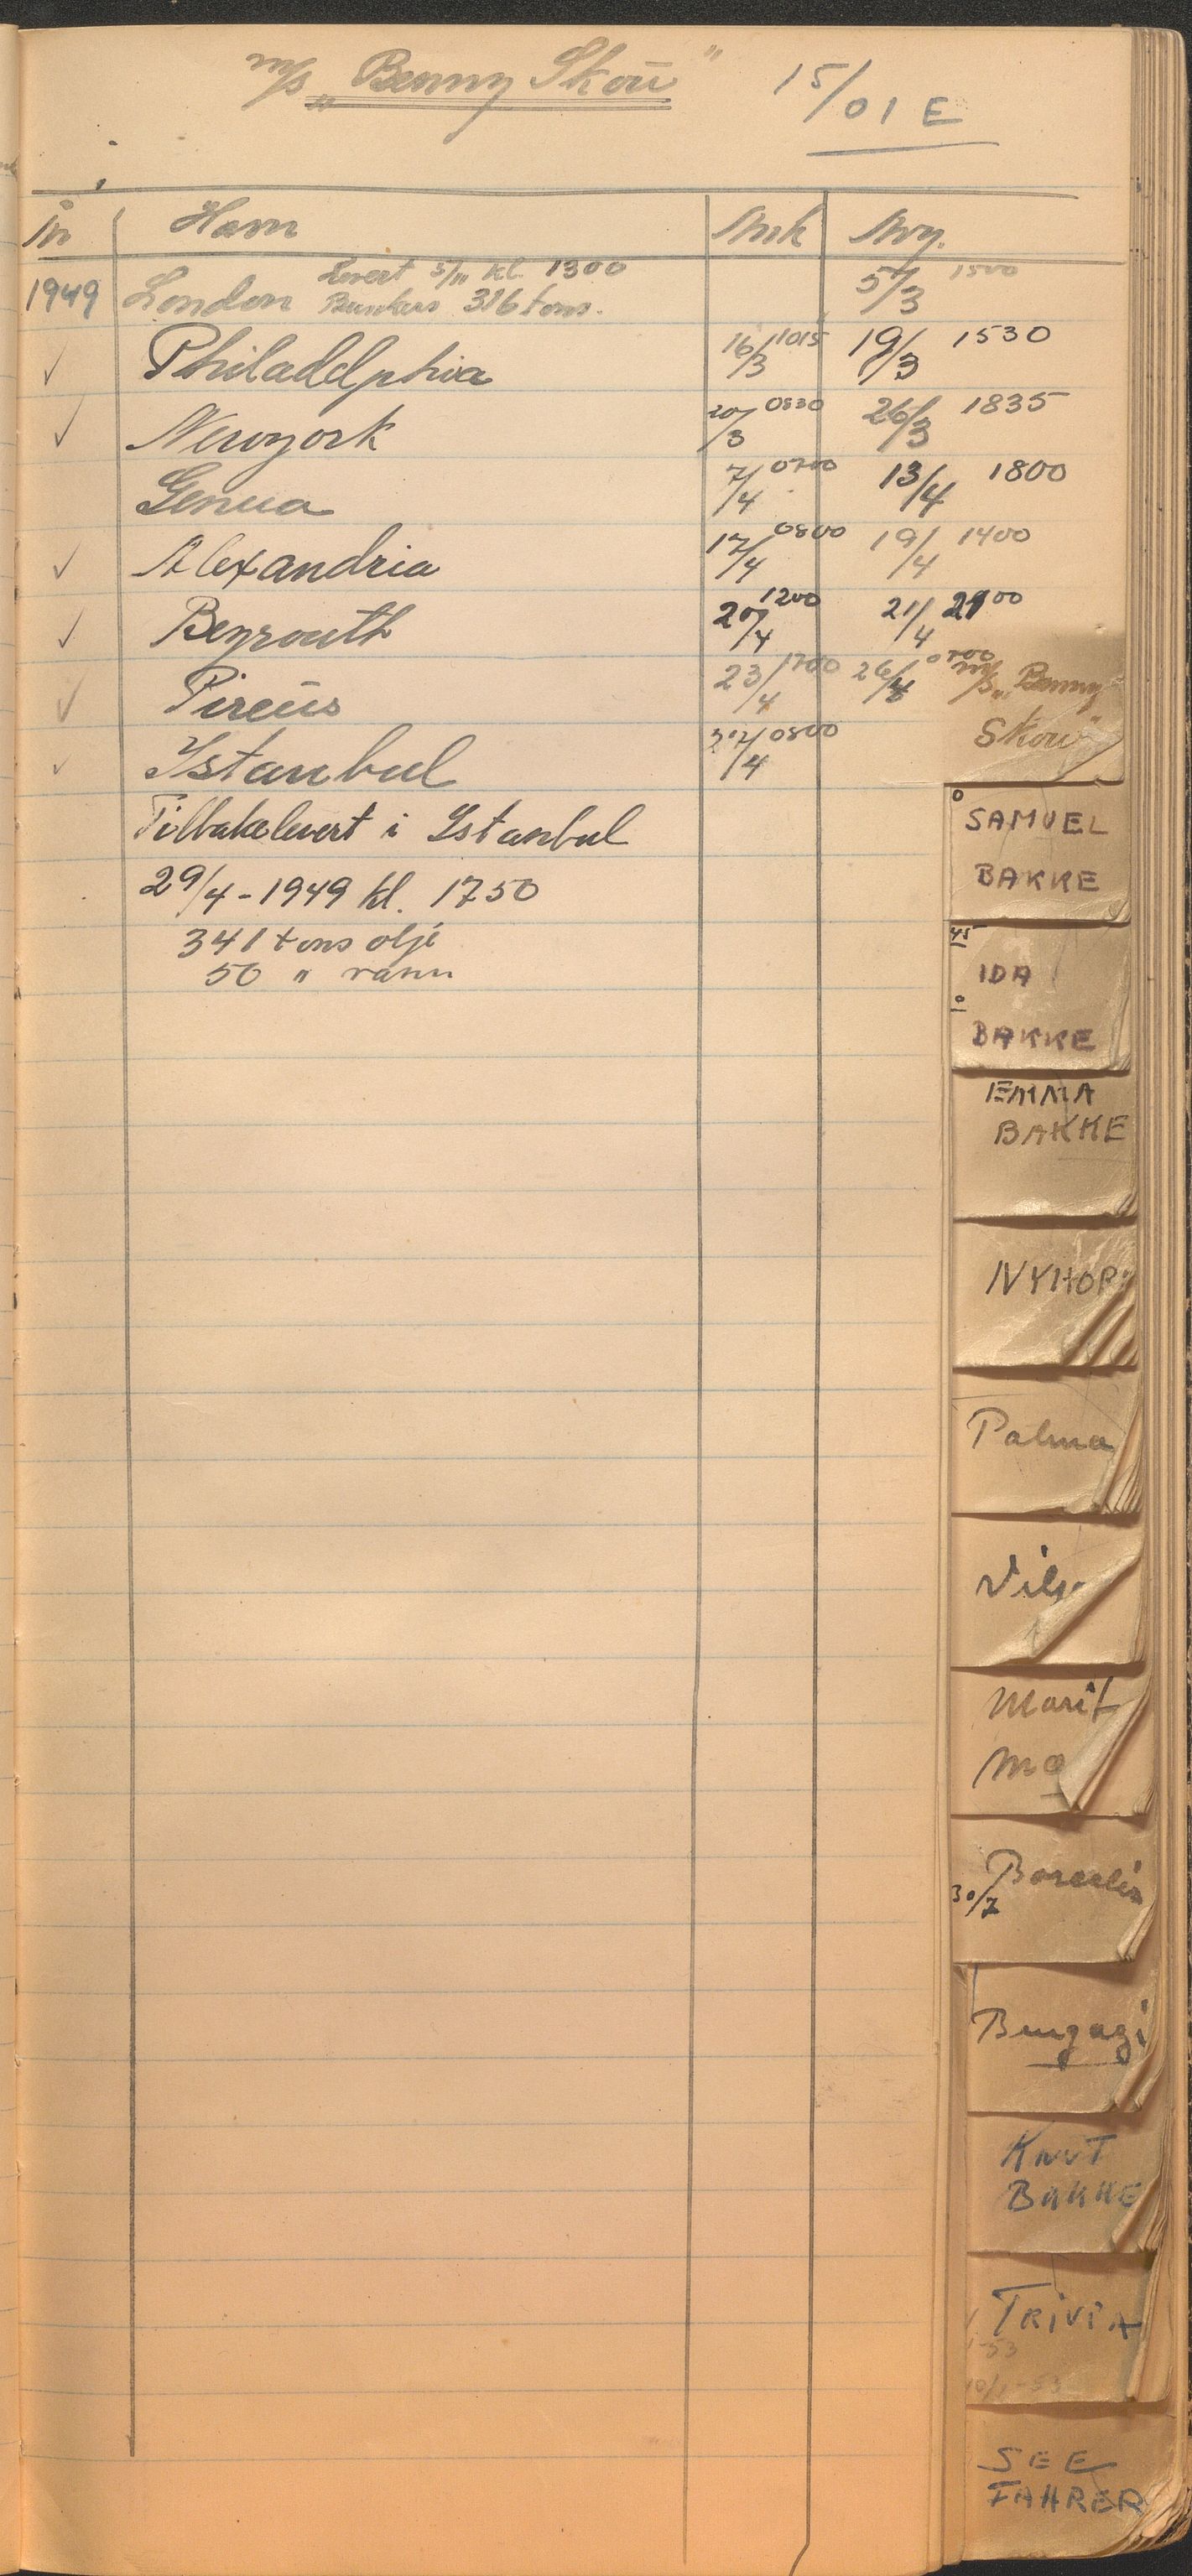 m/s „Benny Skou"
15/01 E
År Havn Ank Avg.
Levert 5/3 kl 1300
1949 London Bunkers 316 tons. 5/3 1500
✓ Philadelphia 16/3 1015 19/3 1530
✓ Newyork 20/3 0830 26/3 1835
Genua 7/4 0700 13/4 1800
✓ Alexandria 17/4 0800 19/4 1400
✓ Beyrouth 20/4 1200 21/4 2100
✓ Pireus 23/4 1700 26/4 0700
✓ Istanbul 27/4 0800
Tilbakelevert i Istanbul
29/4 - 1949 kl. 1750
341 tons olje
50 " vann
m/s „Benny
Skou"
SAMUEL
BAKKE
45
IDA
BAKKE
EMMA
BAKKE
NYHOR
Palma
Marit
Mæ
30/7
KNUT
BAKKE
TRIVIA
10/1-53
SEE
FAHRER